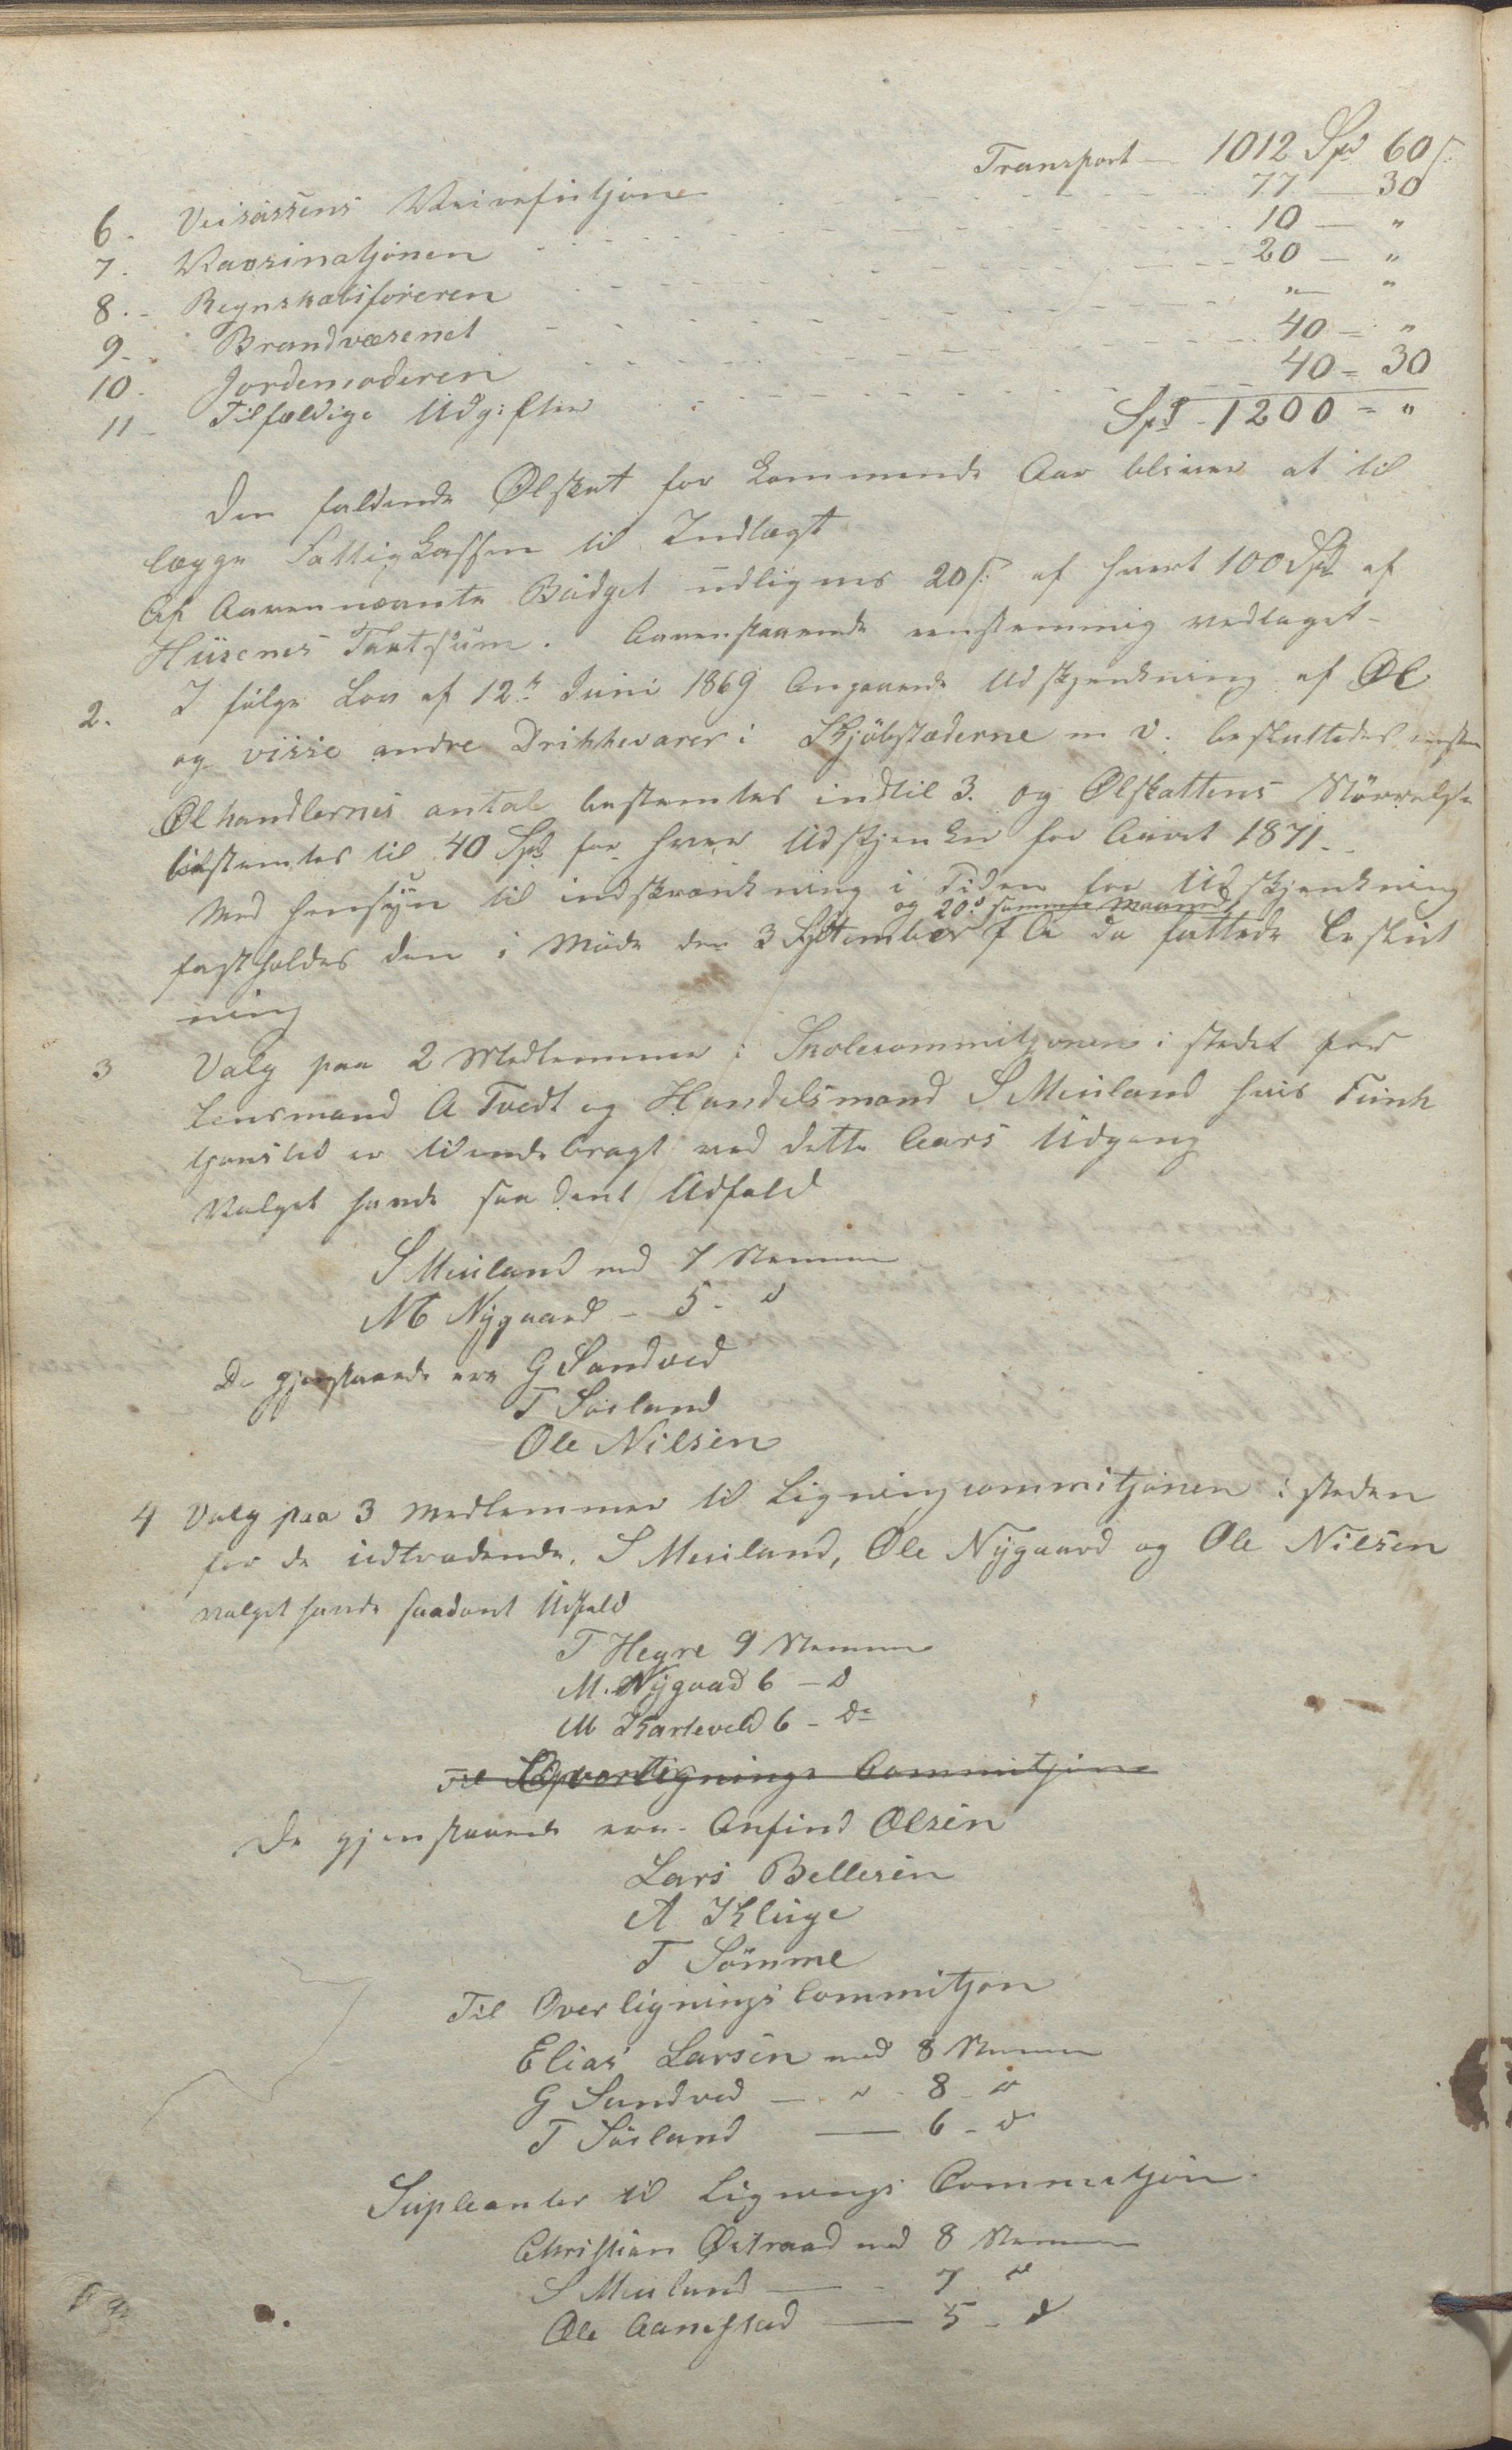 Transport — 1012 Spd 60 s.
6. Veisæssens Reivefisjone 77 — 30
7. Vaxsinatjonen 10 — "
8. Regnskabsföreren 20 — "
9. Brandvæsenet " — "
10. Jordemoderen 40 — "
11 Tilfældige Udgifter 40 = 30
Spd. 1200 = "
Den faldende Ølskat for kommende Aar bliver at til
lægge Fattigkassen til Indtægt
Af Aavennævnte Büdget üdlignes 20 s. af hvert 100 Spd af
Hüsenes Taxtsüm. Aavenstaaende eenstemmig vedtaget -
2. I fölge Lov af 12te Juni 1869 Angaaende Udskjenkning af Øl
og visse andre Drikkevarer i Kjöbstæderne m v. besluttedes eenstem
Ølhandlernes antal bestemtes indtil 3. og Ølskattens Störrelse
bestemtes til 40 Spd for hver Udskjenker for Aaret 1871 -
Med Hensÿn til indskrænkning i Tiden for Udskjenkning
og 20de samme Maaned
fastholdes den i Möde den 3 September f A da fattede Beslüt
ning
3 Valg paa 2 Medlemmer i Skolecommitjonen i stedet for
Lensmand A Tvedt og Handelsmand S Meüland hvis Fünk
tjonstid er tilendebragt ved dette Aars Udgang
Valget havde saadant Udfald
S Meüland med 7 Stemmer
M Nÿgaard - 5 - d
De gjenstaaende ere G Sandved
T Söiland
Ole Nilsen
4 Valg paa 3 Medlemmer til Ligningcommitjonen i steden
for de üdtrædende, S Meüland, Ole Nÿgaard og Ole Nilsen
valget havde saadant Udfald
T Hegre 9 Stemmer
M. Nÿgaad 6 — d
M Karleveld 6 - do
Til Overlignings Commitjone
De gjenstaaende ere - Anfind Olsen
Lars Bellesen
A Klüge
T Sömme
Til Overlignings Commitjon
Elias Larsen med 8 Stemmer
G Sandved — " - 8 - d
T Söiland — 6 - d
Supleanter til Lignings Commitjon
Christian Østraad med 8 Stemmer
S Meüland — - 7 d
Ole Aanestad — 5 - d